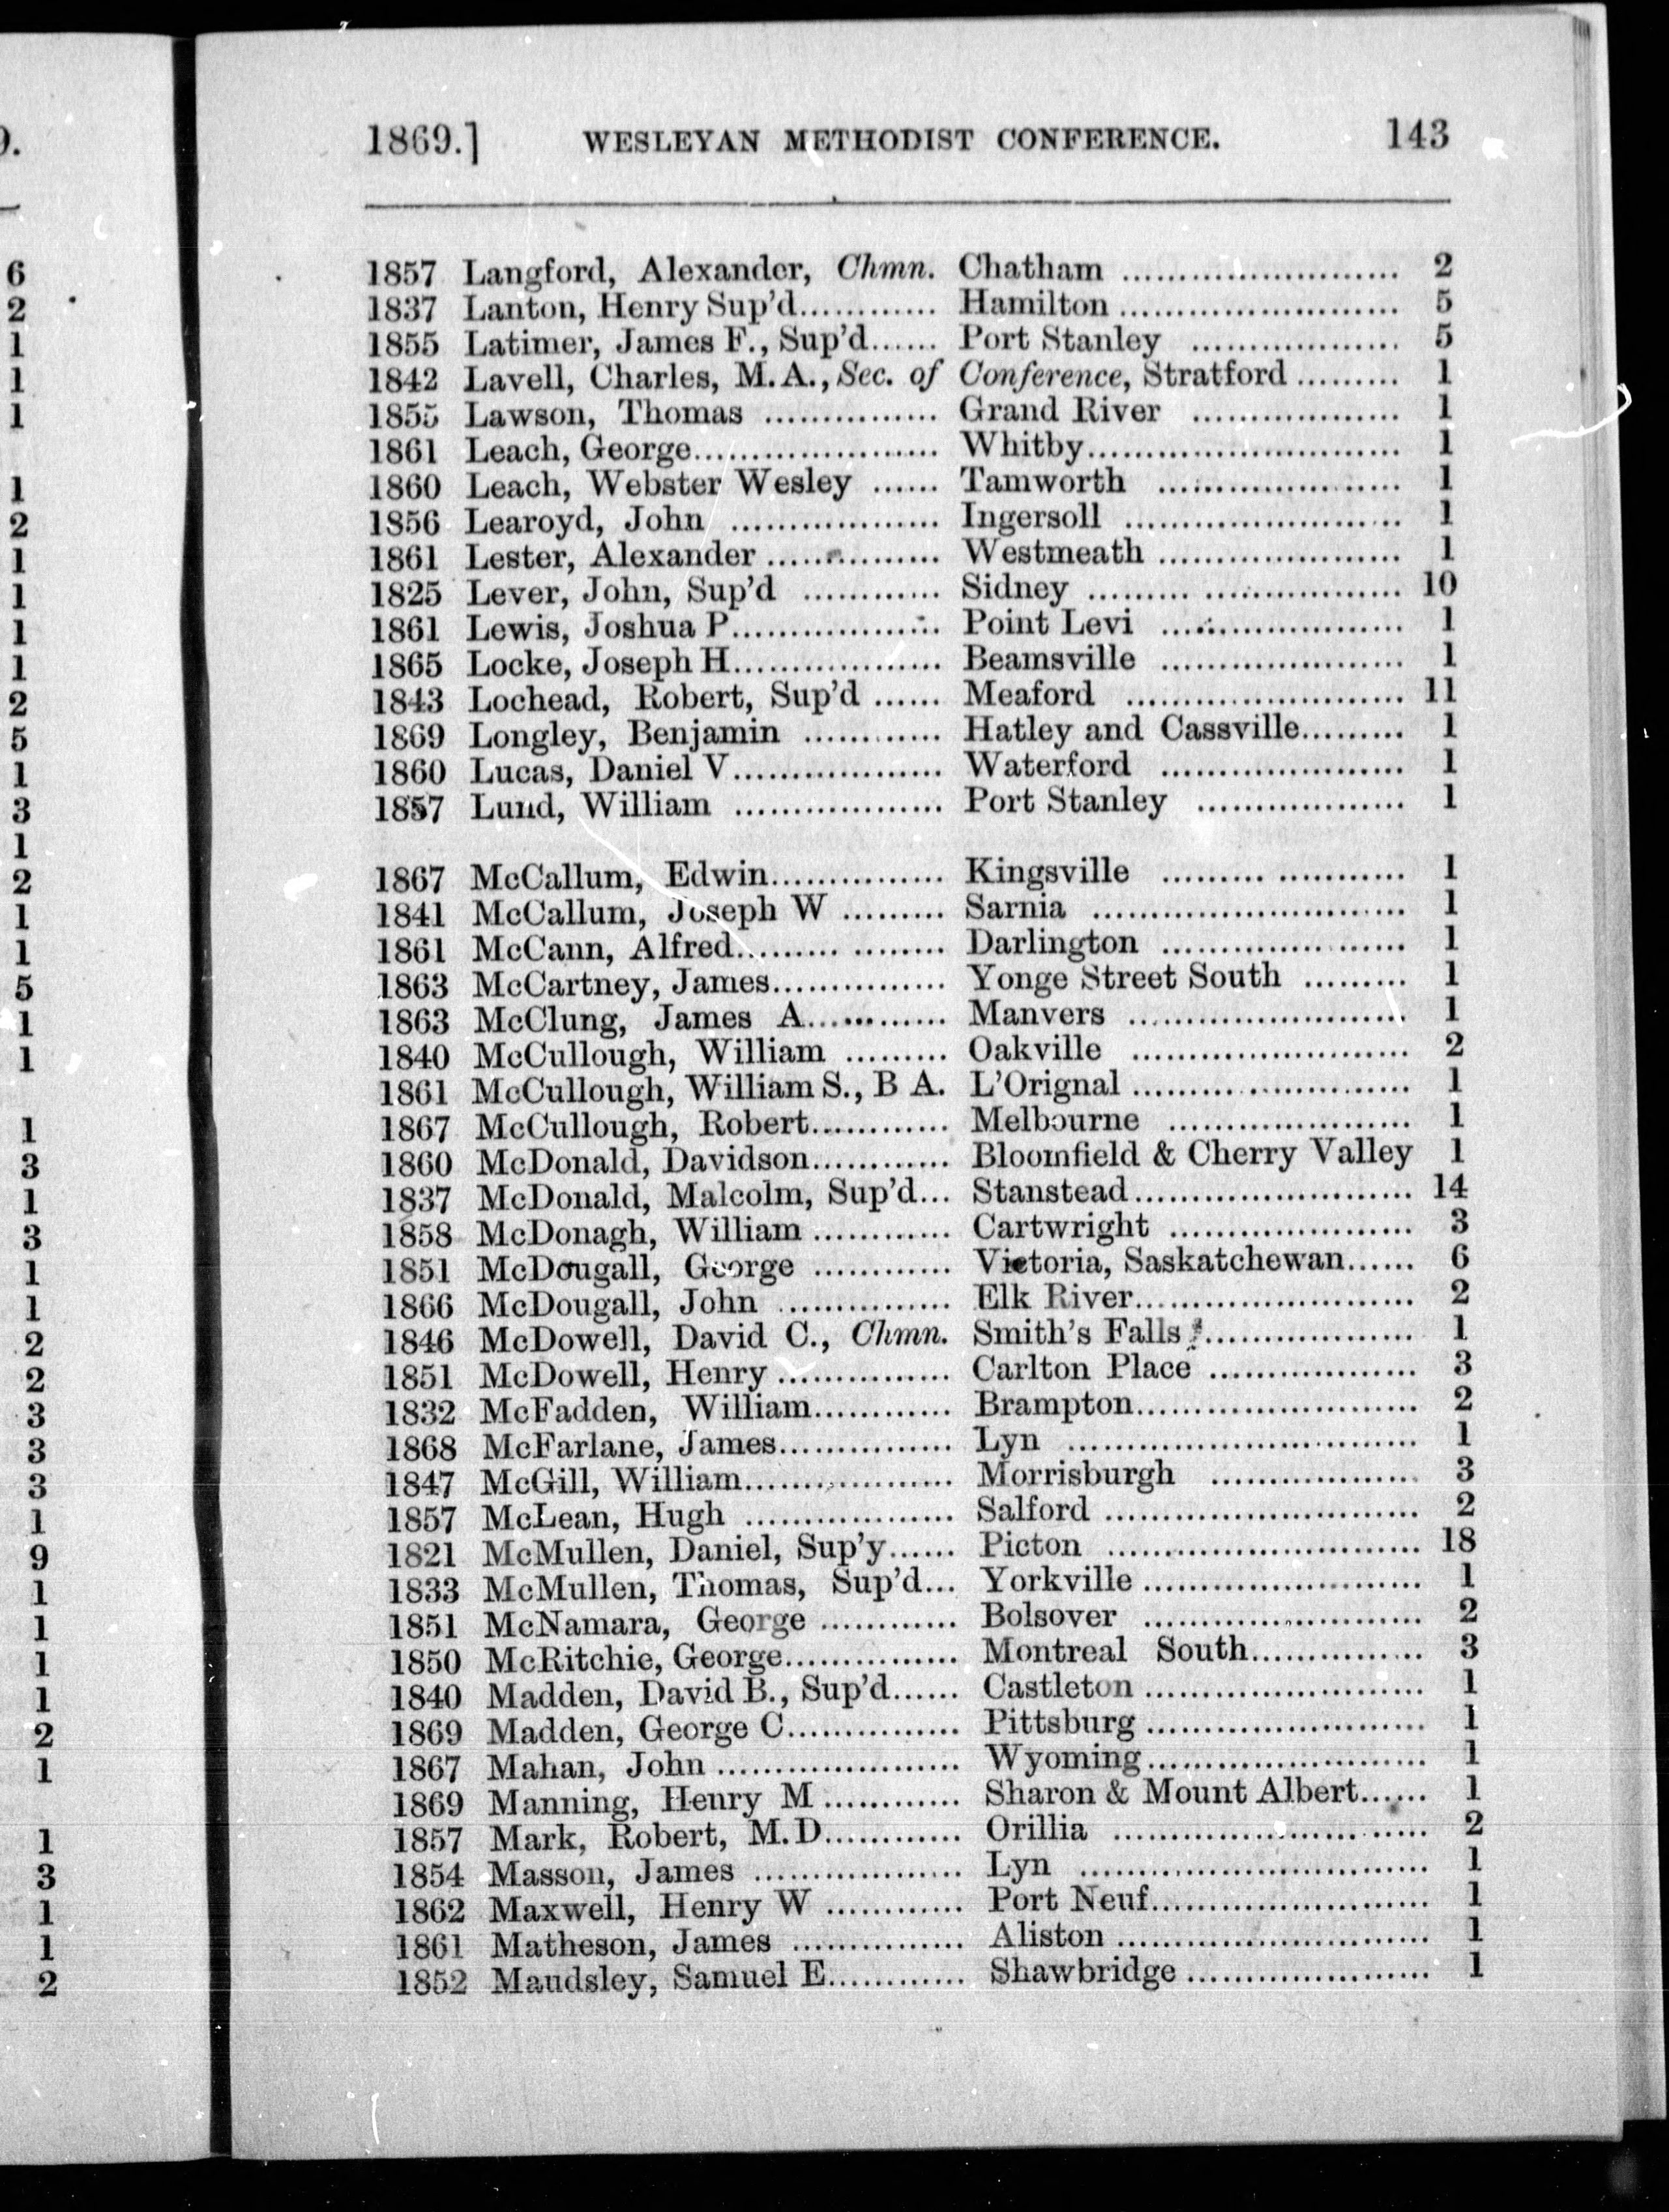 1869.] WESLEYAN METHODIST CONFERENCE. 143
1857 Langford, Alexander, Chmn. Chatham ........................ 2
1837 Lanton, Henry Sup'd............ Hamilton ........................ 5
1855 Latimer, James F., Sup'd...... Port Stanley .................. 5
1842 Lavell, Charles, M.A., Sec. of Conference, Stratford ......... 1
1855 Lawson, Thomas ............... Grand River .................. 1
1861 Leach, George..................... Whitby........................... 1
1860 Leach, Webster Wesley ...... Tamworth ..................... 1
1856 Learoyd, John .................. Ingersoll ........................ 1
1861 Lester, Alexander ............... Westmeath ..................... 1
1825 Lever, John, Sup'd ............ Sidney ........................... 10
1861 Lewis, Joshua P.................. Point Levi ..................... 1
1865 Locke, Joseph H.................. Beamsville ..................... 1
1843 Lochead, Robert, Sup'd ...... Meaford ........................ 11
1869 Longley, Benjamin ............ Hatley and Cassville......... 1
1860 Lucas, Daniel V.................. Waterford ..................... 1
1857 Lund, William .................. Port Stanley .................. 1
1867 McCallum, Edwin............... Kingsville ..................... 1
1841 McCallum, Joseph W ......... Sarnia ........................... 1
1861 McCann, Alfred.................. Darlington ..................... 1
1863 McCartney, James............... Yonge Street South ......... 1
1863 McClung, James A............ Manvers ........................ 1
1840 McCullough, William ......... Oakville ........................ 2
1861 McCullough, William S., B A. L'Orignal ........................ 1
1867 McCullough, Robert............ Melbourne ..................... 1
1860 McDonald, Davidson............ Bloomfield & Cherry Valley 1
1837 McDonald, Malcolm, Sup'd... Stanstead........................ 14
1858 McDonagh, William ............ Cartwright ..................... 3
1851 McDougall, George ............ Victoria, Saskatchewan...... 6
1866 McDougall, John ............... Elk River........................ 2
1846 McDowell, David C., Chmn. Smith's Falls .................. 1
1851 McDowell, Henry ............... Carlton Place .................. 3
1832 McFadden, William............ Brampton........................ 2
1868 McFarlane, James............... Lyn .............................. 1
1847 McGill, William.................. Morrisburgh .................. 3
1857 McLean, Hugh .................. Salford ........................... 2
1821 McMullen, Daniel, Sup'y...... Picton ........................... 18
1833 McMullen, Thomas, Sup'd... Yorkville ........................ 1
1851 McNamara, George ............ Bolsover ........................ 2
1850 McRitchie, George............... Montreal South............... 3
1840 Madden, David B., Sup'd...... Castleton ........................ 1
1869 Madden, George C............... Pittsburg ........................ 1
1867 Mahan, John ..................... Wyoming........................ 1
1869 Manning, Henry M ............ Sharon & Mount Albert...... 1
1857 Mark, Robert, M.D............ Orillia ........................... 2
1854 Masson, James .................. Lyn .............................. 1
1862 Maxwell, Henry W ............ Port Neuf........................ 1
1861 Matheson, James ............... Aliston ........................... 1
1852 Maudsley, Samuel E............ Shawbridge ..................... 1